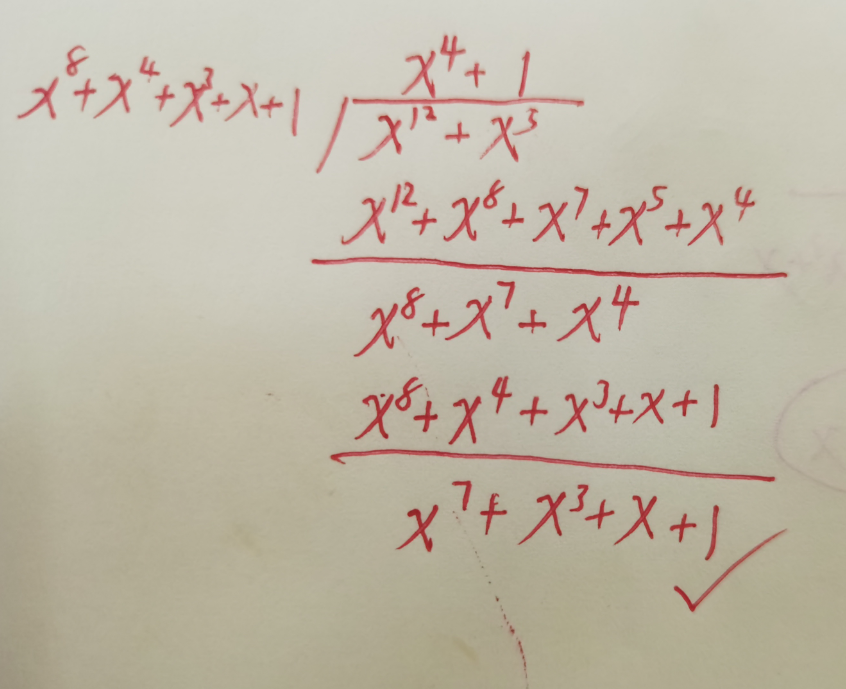 x⁴+1
x⁸+x⁴+x³+x+1 / x¹²+x⁵
x¹²+x⁸+x⁷+x⁵+x⁴
x⁸+x⁷+x⁴
x⁸+x⁴+x³+x+1
x⁷+x³+x+1 ✓